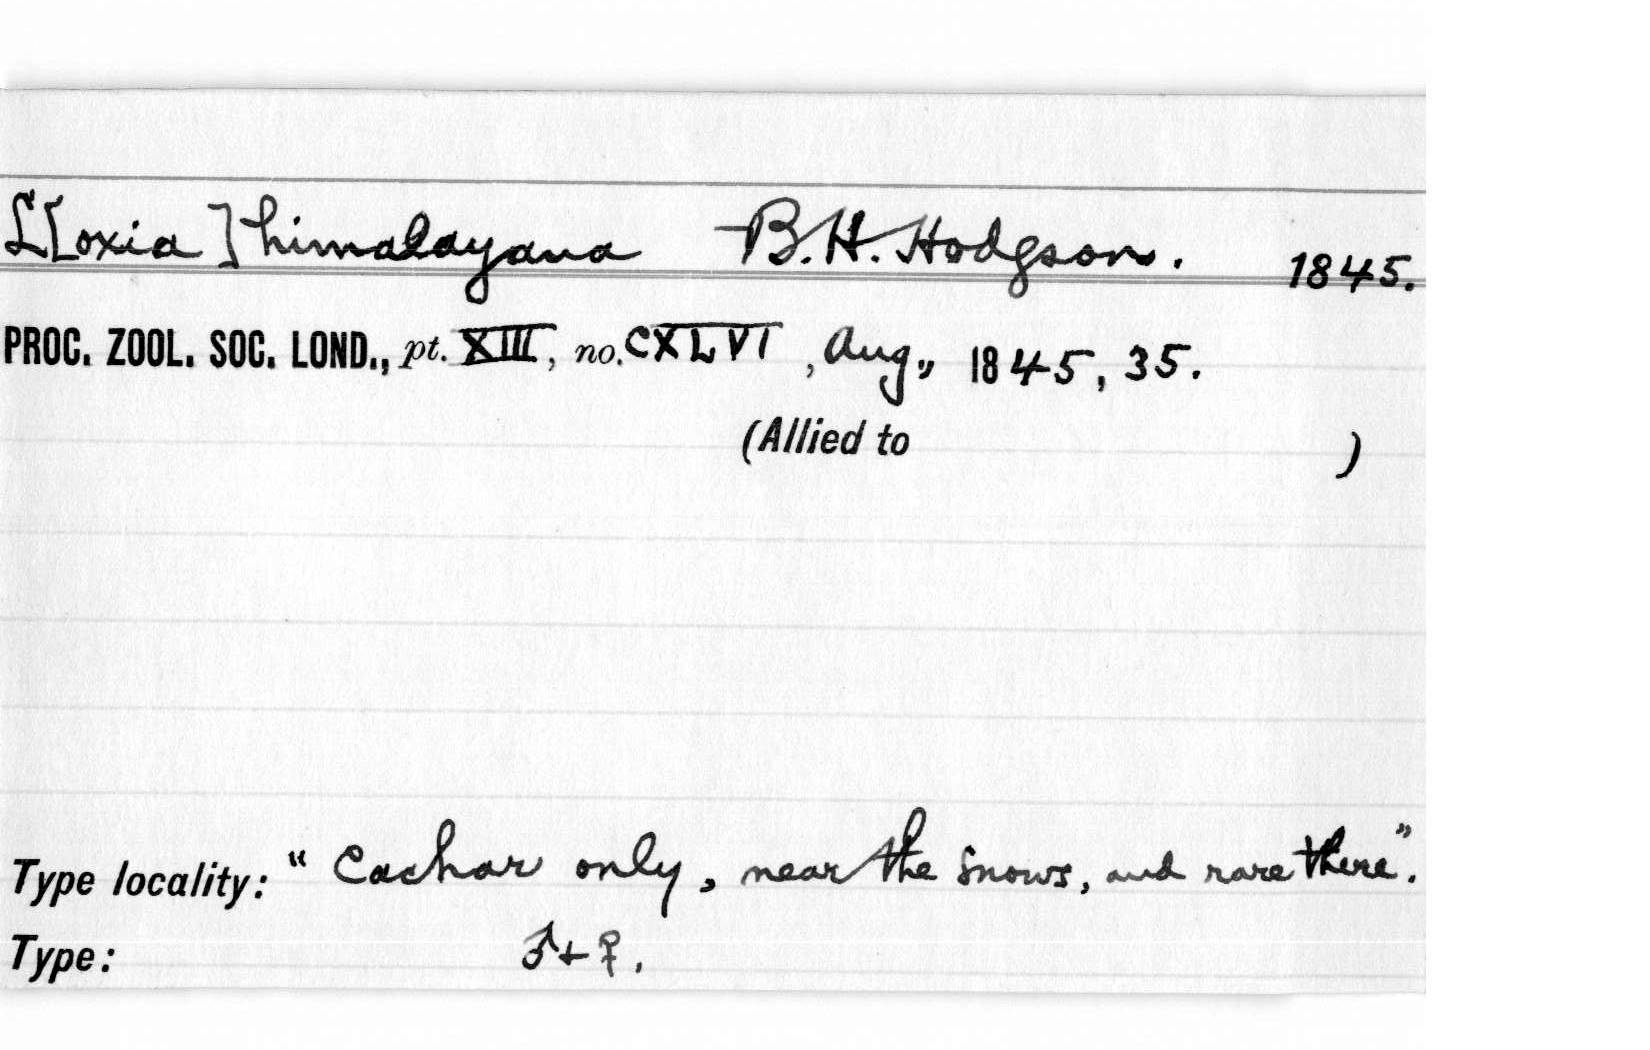 L[oxia] himalayana B.H. Hodgson. 1845.
PROC. ZOOL. SOC. LOND., pt. XIII, no. CXLVI, Aug., 1845, 35.
(Allied to )
Type locality: "Cachar only, near the snows, and rare there".
Type: ♂ + ♀.